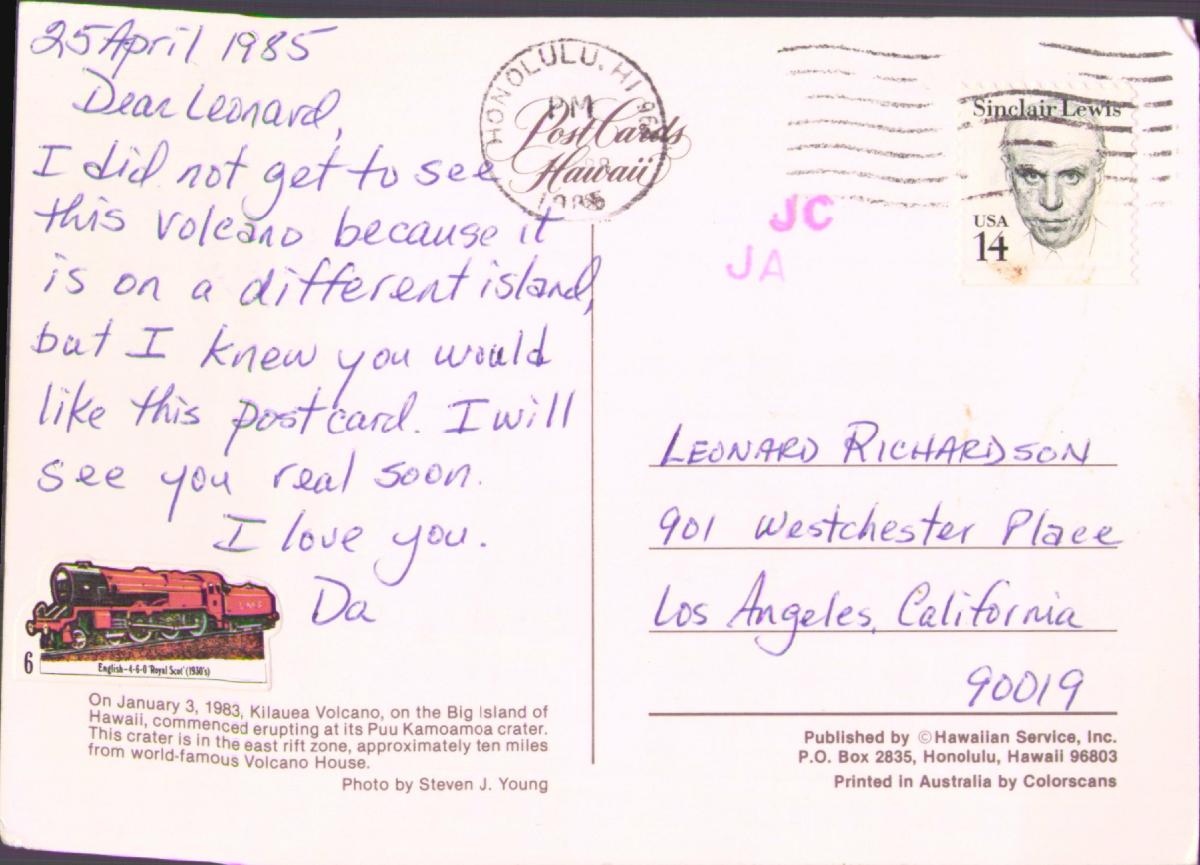 25 April 1985
Dear Leonard,
I did not get to see
this volcano because it
is on a different island,
but I knew you would
like this postcard. I will
see you real soon.
I love you.
Da
L M S
6
English-4-6-0 'Royal Scot' (1930's)
On January 3, 1983, Kilauea Volcano, on the Big Island of
Hawaii, commenced erupting at its Puu Kamoamoa crater.
This crater is in the east rift zone, approximately ten miles
from world-famous Volcano House.
Photo by Steven J. Young
HONOLULU, HI
PM
1985
Post Cards
Hawaii
Sinclair Lewis
USA
14
JC
JA
LEONARD RICHARDSON
901 Westchester Place
Los Angeles, California
90019
Published by ©Hawaiian Service, Inc.
P.O. Box 2835, Honolulu, Hawaii 96803
Printed in Australia by Colorscans